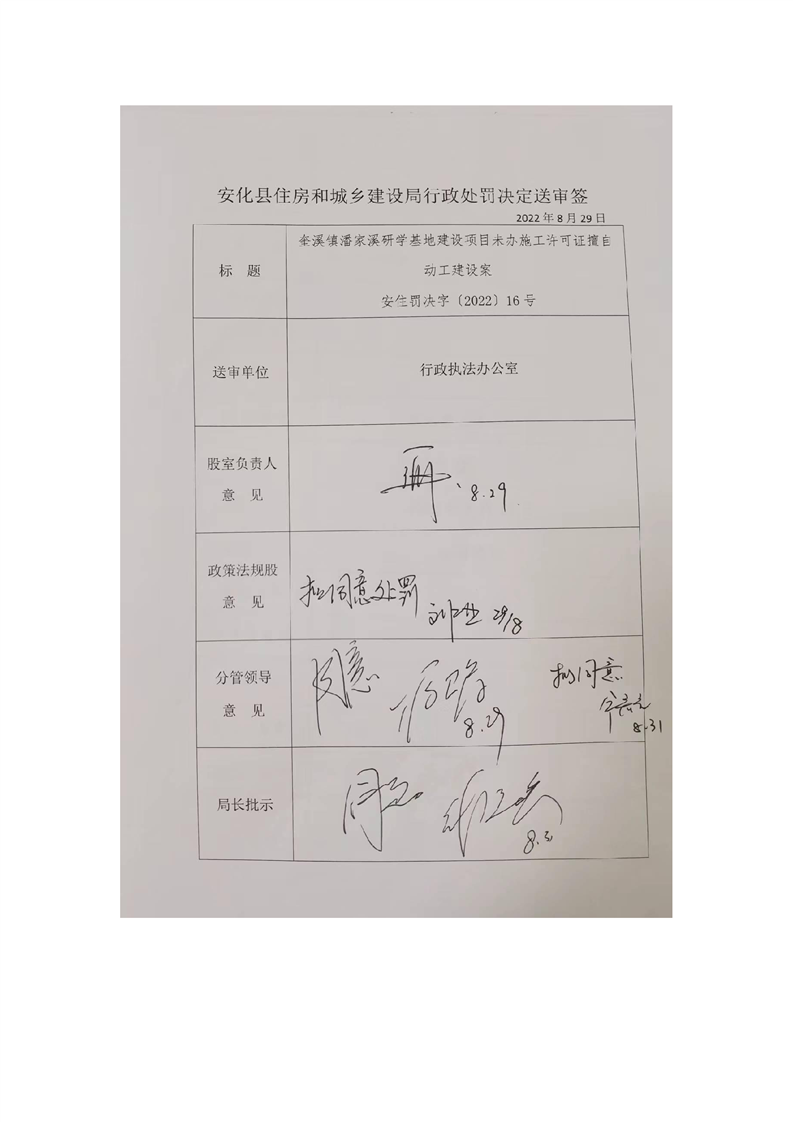 安化县住房和城乡建设局行政处罚决定送审签
2022年8月29日
标 题
奎溪镇潘家溪研学基地建设项目未办施工许可证擅自
动工建设案
安住罚决字〔2022〕16号
送审单位
行政执法办公室
股室负责人
意 见
8.29
政策法规股
意 见
拟同意处罚
29/8
分管领导
意 见
同意
8.29
拟同意
8.31
局长批示
同意